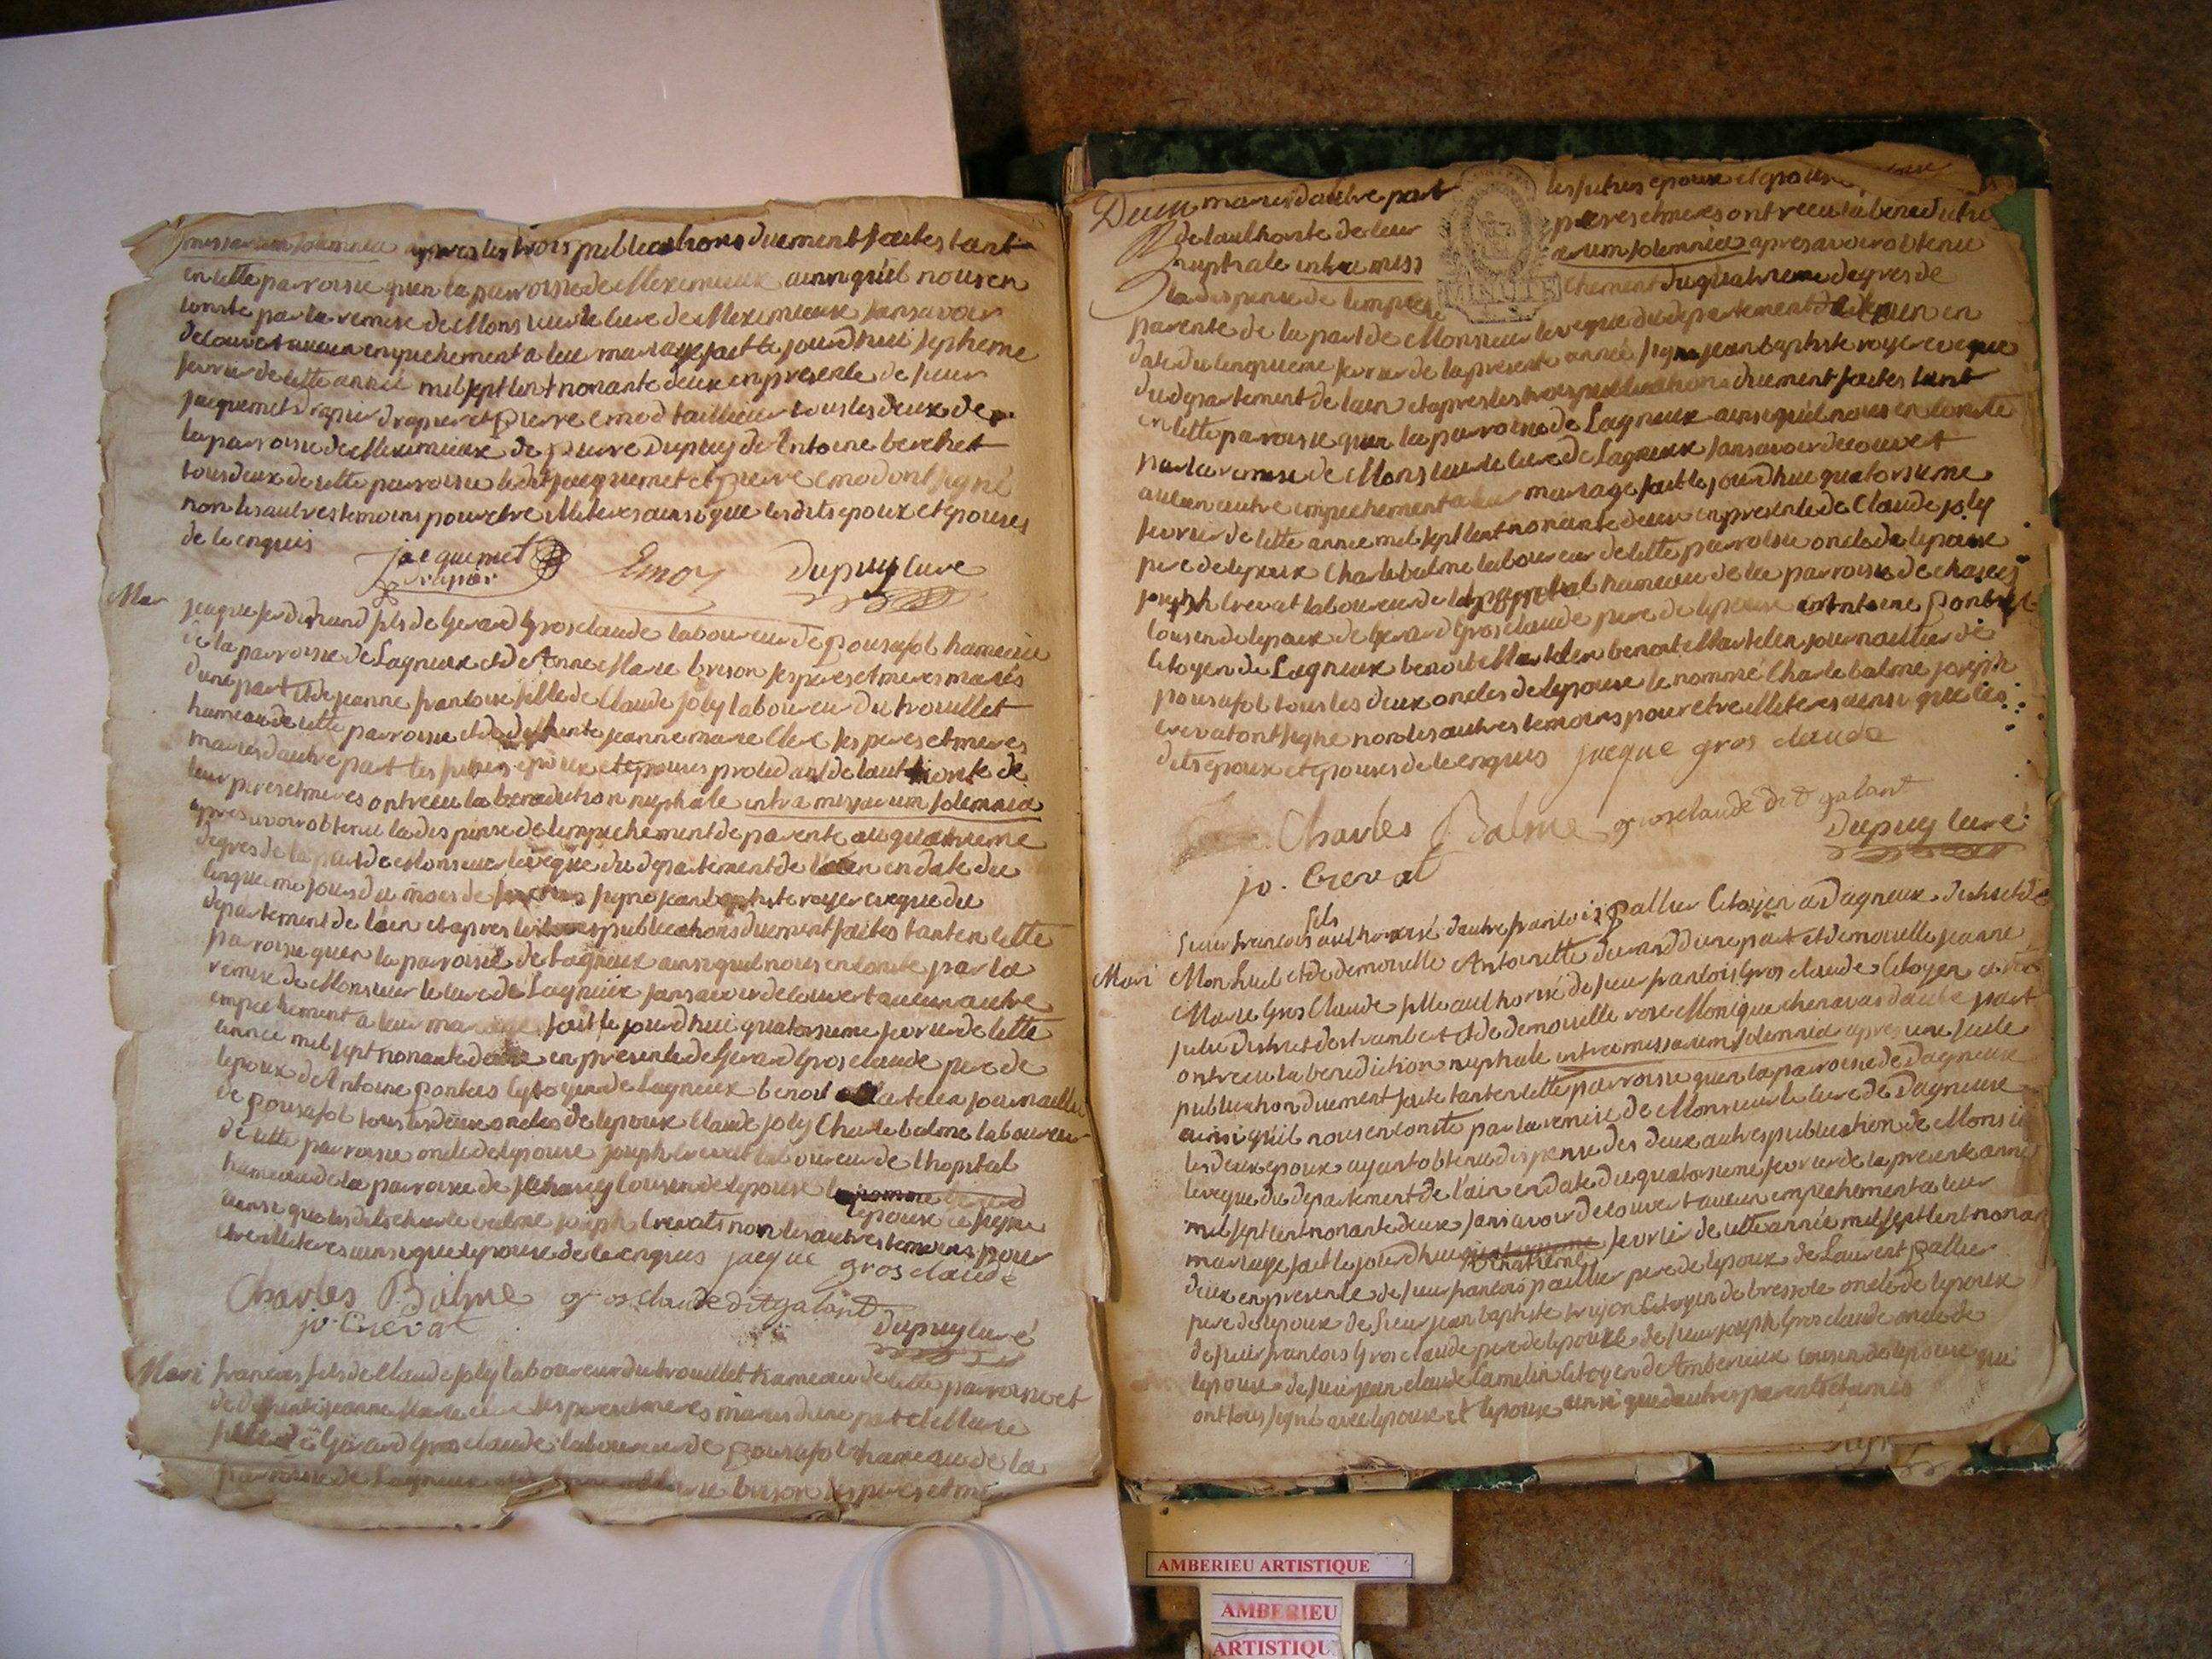 missarum solemnia apres les trois publications duement faites tant
en cette parroisse quen la parroisse de Meximieux ainsi quil nous en
conste par la remise de Monsieur le cure de Meximieux sans avoir
decouvert aucun empechement a leur mariage fait le jourdhui septieme
fevrier de cette année mil sept cent nonante deux en presence de sieur
jacquemet drapier et pierre emod tous les deux de
la parroisse de Meximieux de pierre Dupuy de Antoine berchet
tous deux de cette parroisse ledit jacquemet et pierre emod ont signé
non les autres temoins pour etre illiteres ainsi que les dits epoux et epouses
de ce enquis
jacquemet Emoz Dupuy cure
drapier
Mar
jacque ferdinand fils de Gerard Grosclaude laboureur de pousafol hameau
de la parroisse de Lagneux et de Anne Marie brison ses peres et meres mariés
dune part et de jeanne francoise fille de Claude joly laboureur du trouillet
hameau de cette parroisse et de defunte jeanne marie Clere ses peres et meres
mariés dautre part les futurs epoux et epouses procedant de lauthorite de
leur peres et meres ont recu la benediction nuptiale intra missarum solemnia
apres avoir obtenu la dispense de lempechement de parente au quatrieme
degres de la part de Monsieur leveque du departement de lain en date du
cinquieme jours du mois de fevrier signe jean baptiste royer eveque du
departement de lain et apres les trois publications duement faites tant en cette
parroisse quen la parroisse de Lagneux ainsi quil nous en conste par la
remise de Monsieur le cure de Lagneux sans avoir decouvert aucun autre
empechement a leur mariage fait le jourdhui quatorsieme fevrier de cette
année mil sept nonante deux en presence de Gerard Grosclaude pere de
lepoux de Antoine pontus cytoyen de Lagneux benoit Martelen journaellier
de pousafol tous les deux oncles de lepoux Claude joly Charle balme laboureur
de cette parroisse oncle de lepouse joseph crevat laboureur de lhopital
hameau de la parroisse de chasey cousen de lepouse
lepoux a signe
ainsi que les dits charle balme joseph crevats non les autres temoins pour
etre illiteres ainsi que lepouse de ce enquis jacque gros claude
Charles Balme grosclaude dit galant
jo. Crevat
Dupuy curé
Mari
francois fils de Claude joly laboureur du trouillet hameau de cette parroisse et
de defunte jeanne Marie clere ses peres et meres mariés dune part et de Marie
fille de Gerard Grosclaude laboureur de pousafol hameau de la
parroisse de Lagneux et de Anne Marie brison ses peres et meres
Deum mariés dautre part les futurs epoux et epouse
de lauthorite de leur peres et meres ont recu la benediction
nuptiale intra missarum solemnia apres avoir obtenu
la dispense de lempechement du quatrieme degres de
parente de la part de Monsieur leveque du departement de lain en
date du cinquieme fevrier de la presente année signe jean baptiste royer eveque
du departement de lain et apres les trois publications duement faites tant
en cette parroisse quen la parroisse de Lagneux ainsi quil nous en conste
par la remise de Monsieur le cure de Lagneux sans avoir decouvert
aucun autre empechement a leur mariage fait le jourdhui quatorsieme
fevrier de cette année mil sept cent nonante deux en presence de Claude joly
pere de lepoux Charle balme laboureur de cette parroisse oncle de lepoux
joseph crevat laboureur de lhopital hameau de la parroisse de chasey
cousen de lepoux de Gerard Grosclaude pere de lepouse Antoine pontus
Citoyen de Lagneux benoit Martelen journaellier de
pousafol tous les deux oncles de lepouse le nommé Charle balme joseph
crevat ont signe non les autres temoins pour etre illiteres ainsi que les
dits epoux et epouses de ce enquis jacque gros claude
Charles Balme grosclaude dit galant
jo. Crevat Dupuy curé
fils
Sieur francois authorisé dautre francois pallier Citoyen a Dagneux district de
Mari
Monluel et de demoiselle Antoinette durand dune part et demoiselle jeanne
Marie Gros Claude fille authorisé de sieur francois Gros claude Citoyen
district de st rambert et de demoiselle rose Monique chenavas dautre part
ont recu la benediction nuptiale intra missarum solemnia apres une seule
publication duement faite tant en cette parroisse quen la parroisse de Dagneux
ainsi quil nous en conste par la remise de Monsieur le cure de Dagneux
les deux epoux ayant obtenu dispense des deux autres publication de Monsieur
leveque du departement de lain en date du quatorsieme fevrier de la presente année
mil sept cent nonante deux sans avoir decouvert aucun empechement a leur
mariage fait le jourdhui fevrier de cette année mil sept cent nonante
deux en presence de sieur francois paillier pere de lepoux de Laurent pallier
de sieur jean baptiste Citoyen de bressole oncle de lepoux
de sieur francois Gros claude pere de lepouse de sieur joseph Gros claude oncle de
lepouse de sieur jean claude Camelin Citoyen de Amberieux cousen de lepouse qui
ont tous signé avec lepoux et lepouse ainsi que dautres parents et amis
AMBERIEU ARTISTIQUE
AMBERIEU
ARTISTIQU